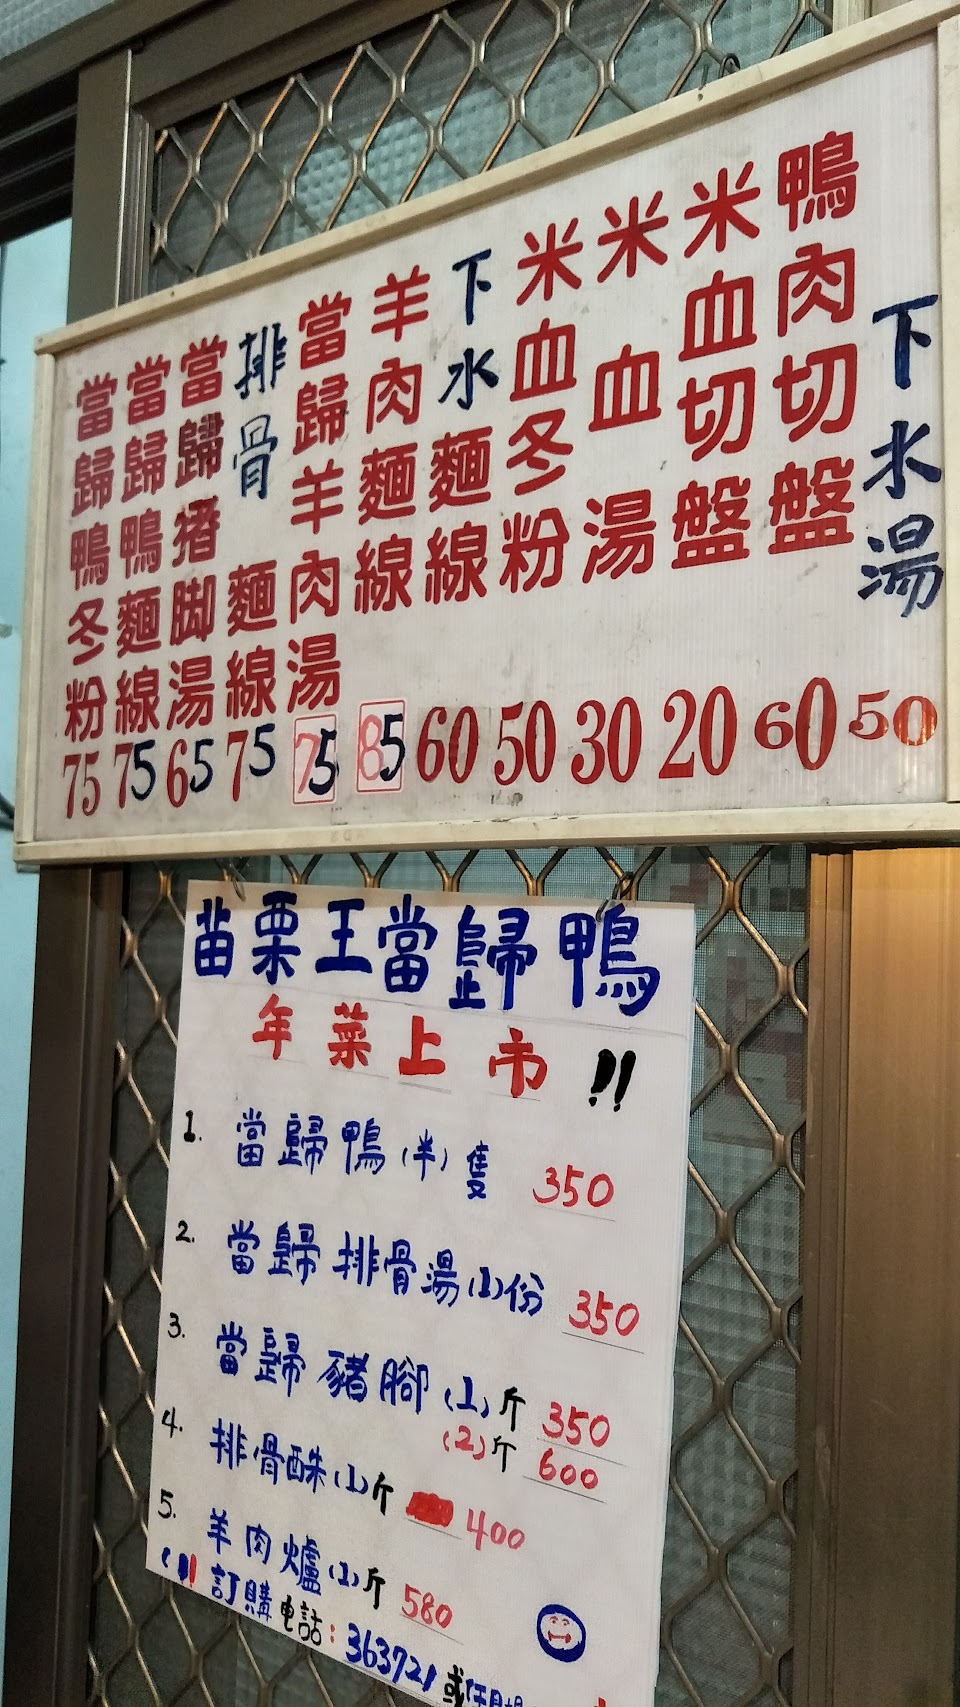 當歸鴨冬粉 75
當歸鴨麵線 75
當歸豬脚湯 65
排骨麵線 75
當歸羊肉湯 75
羊肉麵線 85
下水麵線 60
米血冬粉 50
米血湯 30
米血切盤 20
鴨肉切盤 60
下水湯 50
苗栗王當歸鴨
年菜上市!!
1. 當歸鴨(半)隻 350
2. 當歸排骨湯(1)份 350
3. 當歸豬腳(1)斤 350
(2)斤 600
4. 排骨酥(1)斤 400
5. 羊肉爐(1)斤 580
訂購电話:363721或